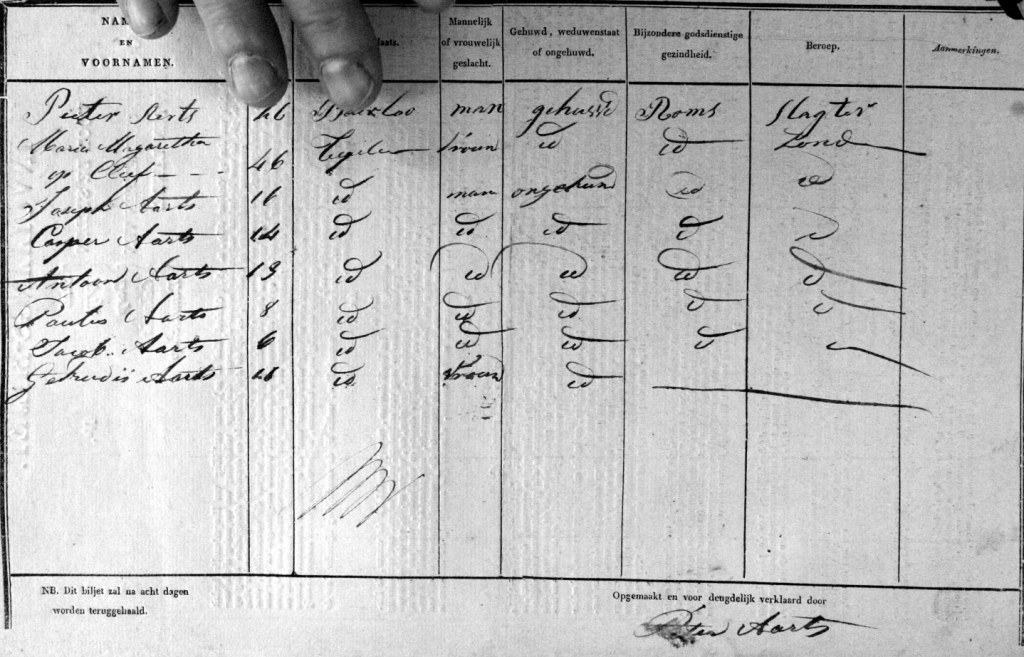 NA
EN
VOORNAMEN.
laats.
Mannelijk
of vrouwelijk
geslacht.
Gehuwd, weduwenstaat
of ongehuwd.
Bijzondere godsdienstige
gezindheid.
Beroep.
Aanmerkingen.
Pieter Aerts 46 man gehuwd Roms Slagter
Maria Magaretha vrouw id id Zond
op Cleef 46 id
Joseph Aarts 16 id man ongehuwd id
Casper Aarts 14 id id id id id
Antoon Aarts 13 id id id id id
Paulus Aarts 8 id id id id id
Jacob Aarts 6 id id id id
Getrudis Aarts id vrouw id
NB. Dit biljet zal na acht dagen
worden teruggehaald.
Opgemaakt en voor deugdelijk verklaard door
Pieter Aarts